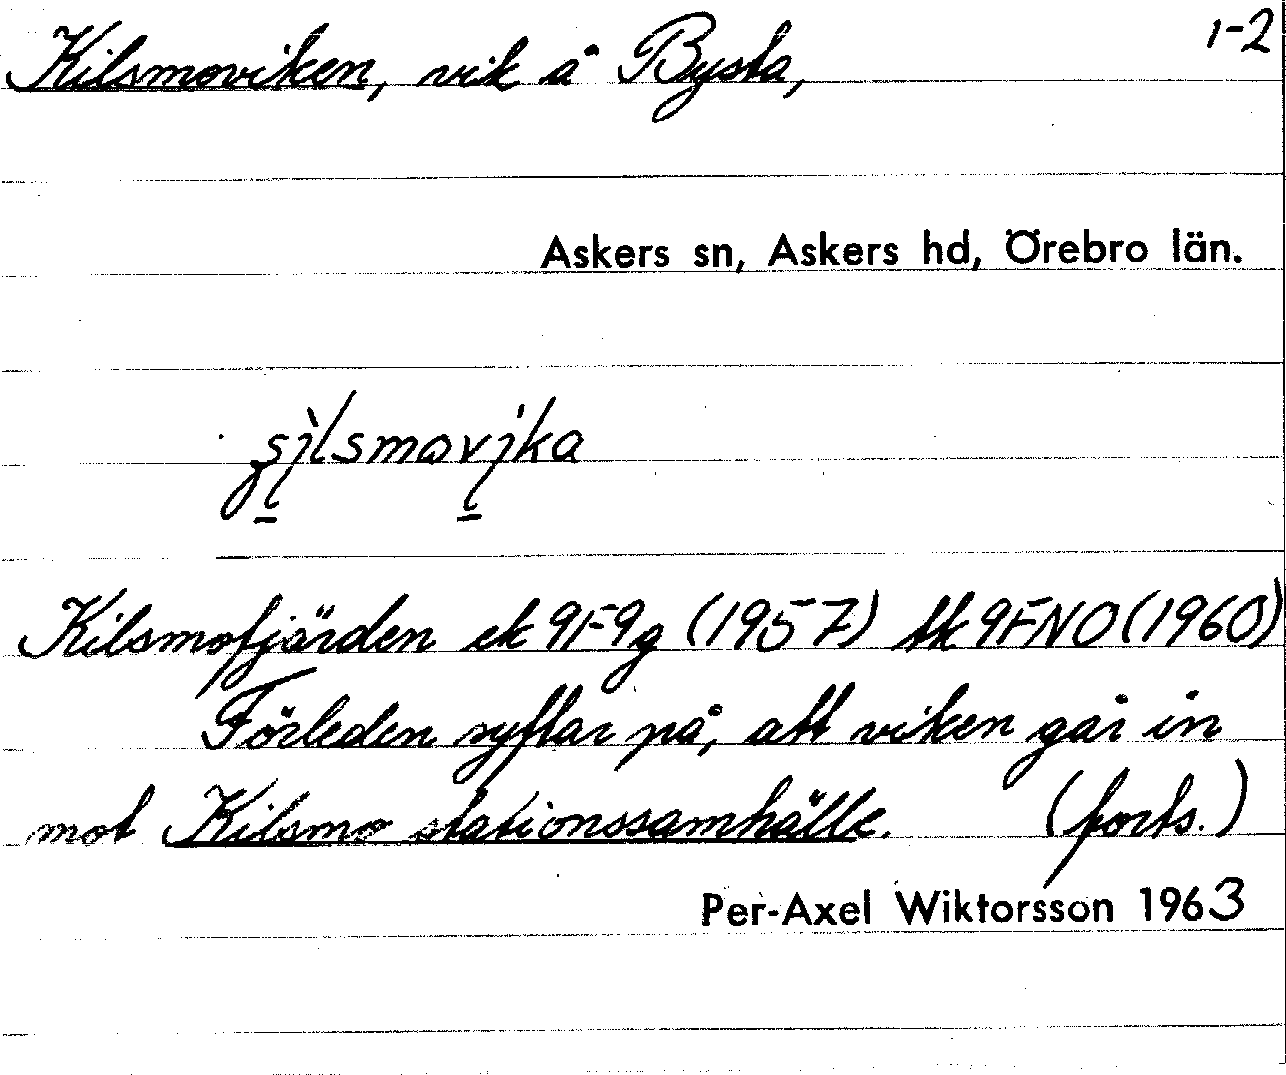 Kilsmoviken, vik å Bysta, 1-2
Askers sn, Askers hd, Örebro län.
Kilsmofjärden ek 9F9g (1957) tk 9FNO (1960)
Förleden syftar på, att viken går in
mot Kilsmo stationssamhälle. (forts.)
Per-Axel Wiktorsson 1963